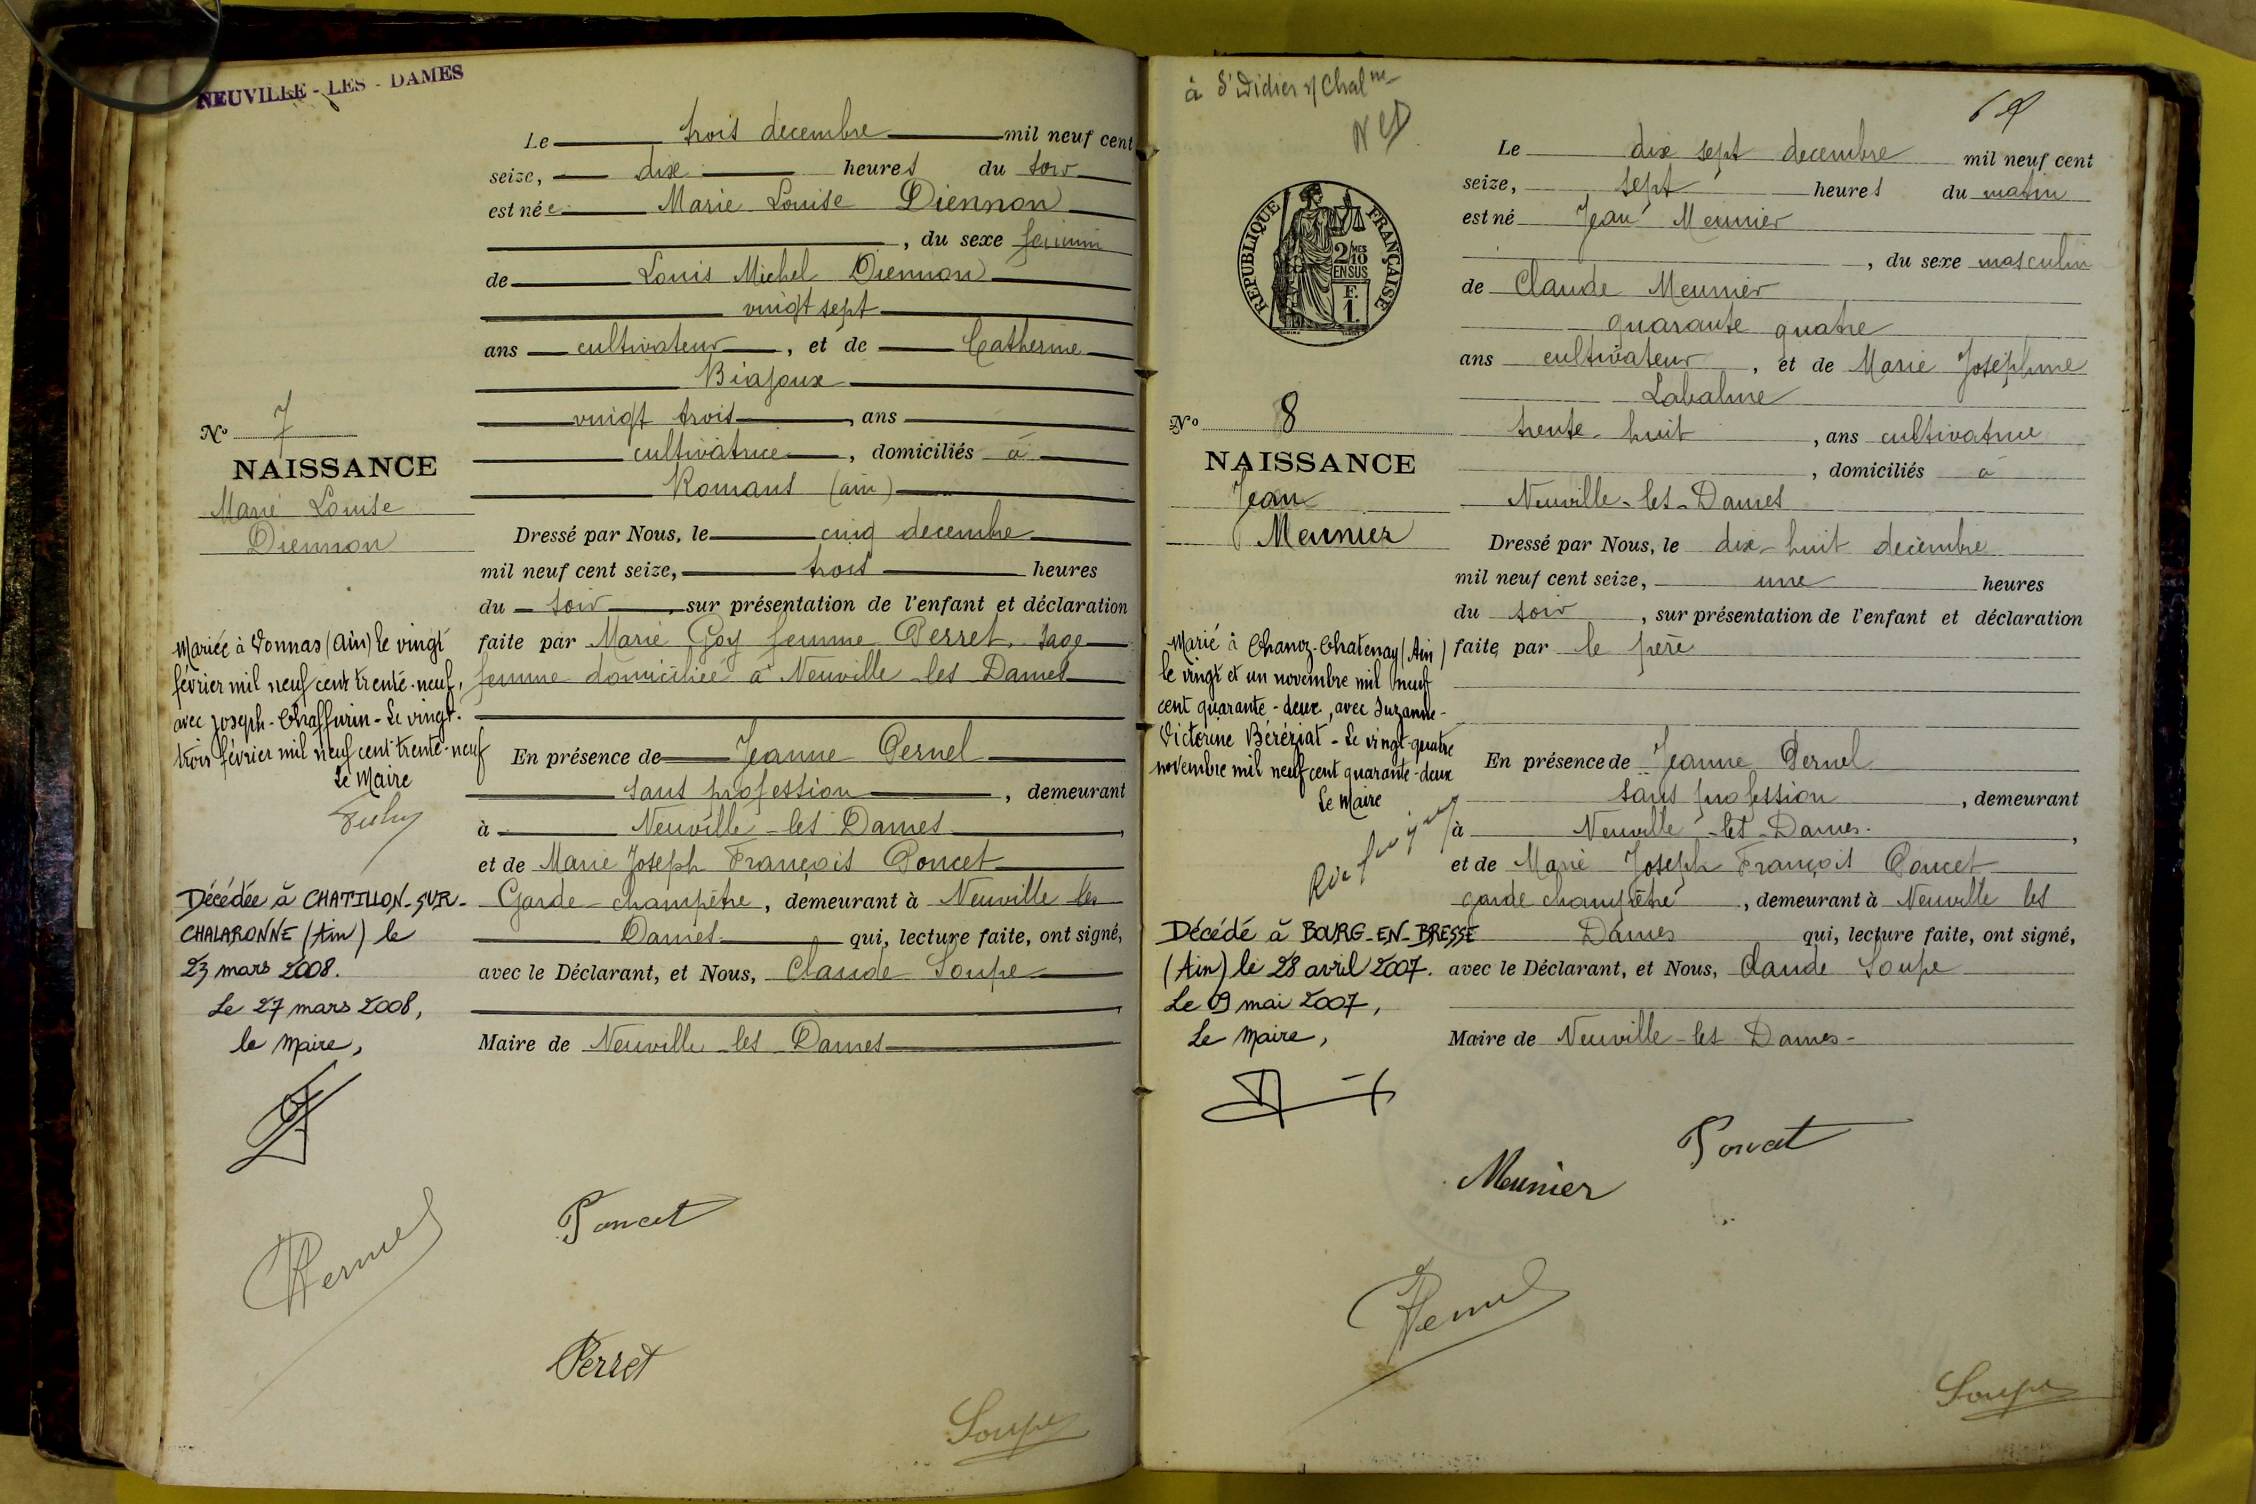 NEUVILLE - LES - DAMES
Le trois decembre mil neuf cent
seize, dix heures du soir
est née Marie Louise Diennon
, du sexe feminin
de Louis Michel Diennon
vingt sept
ans cultivateur, et de Catherine
Biajoux
vingt trois, ans
cultivatrice, domiciliés à
Romans (ain)
Dressé par Nous, le cinq decembre
mil neuf cent seize, trois heures
du soir, sur présentation de l'enfant et déclaration
faite par Marie Goy femme Perret, sage
femme domiciliée à Neuville les Dames
En présence de Jeanne Pernel
sans profession, demeurant
à Neuville-les Dames,
et de Marie Joseph François Poncet
Garde-champêtre, demeurant à Neuville les
Dames qui, lecture faite, ont signé,
avec le Déclarant, et Nous, Claude Soupe
Maire de Neuville-les-Dames
N° 7
NAISSANCE
Marie Louise
Diennon
Mariée à Vonnas (Ain) le vingt
février mil neuf cent trente-neuf,
avec Joseph-Chaffurin-Le vingt-
trois février mil neuf cent trente-neuf
Le Maire
Décédée à CHATILLON-SUR-
CHALARONNE (Ain) le
23 mars 2008.
Le 27 mars 2008,
le Maire,
Pernel
Poncet
Perret
Soupe
à St Didier s/ Chalne
Le dix sept decembre mil neuf cent
seize, sept heures du matin
est né Jean Meunier
, du sexe masculin
de Claude Meunier
quarante quatre
ans cultivateur, et de Marie Joséphine
Labalme
trente-huit, ans cultivatrice
, domiciliés à
Neuville-les-Dames
Dressé par Nous, le dix-huit decembre
mil neuf cent seize, une heures
du soir, sur présentation de l'enfant et déclaration
faite par le père
En présence de Jeanne Pernel
sans profession, demeurant
à Neuville-les-Dames.,
et de Marie Joseph François Poncet
garde champêtre, demeurant à Neuville les
Dames qui, lecture faite, ont signé,
avec le Déclarant, et Nous, Claude Soupe
Maire de Neuville-les Dames-
RÉPUBLIQUE FRANÇAISE
2/10 MES
EN SUS
F.
1.
N° 8
NAISSANCE
Jean
Meunier
Marié à Chanoz-Chatenay (Ain)
le vingt et un novembre mil neuf
cent quarante-deux, avec Suzanne-
Victorine Béréziat-Le vingt-quatre
novembre mil neuf cent quarante-deux
Le Maire
Décédé à BOURG-EN-BRESSE
(Ain) le 28 avril 2007.
Le 09 mai 2007,
Le Maire,
Meunier
Poncet
Pernel
Soupe